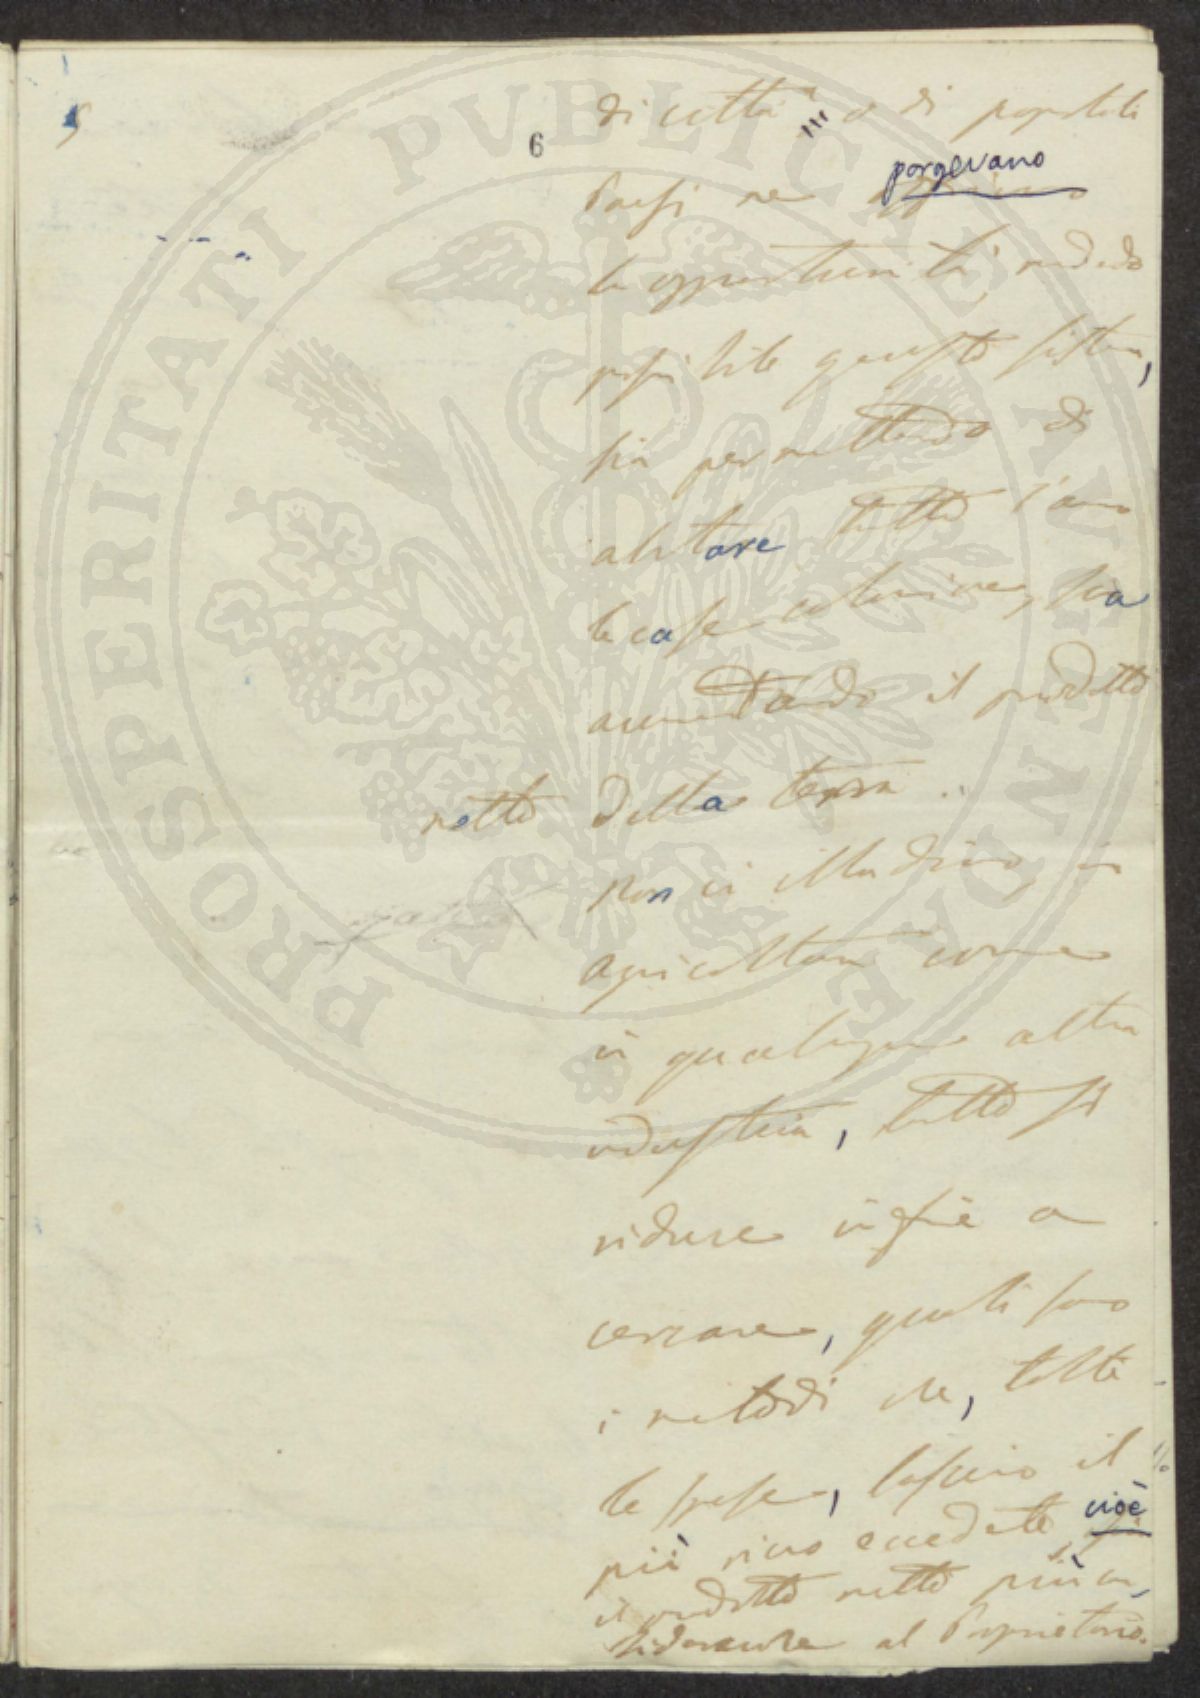 5
6
di città o di popolati
porgevano
Paesi ne offrivano
la opportunità, rendendo
possibile questo sistema,
sia permettendo di
abitare tutto l'anno
le case coloniche, sia
aumentando il prodotto
netto della terra.
Non ci illudiamo, in
agricoltura come
in qualunque altra
industria, tutto si
riduce infine a
cercare, quali sono
i metodi che, tolte
le spese, lascino il
più ricco eccedente, cioè
il prodotto netto più con,
siderevole al Proprietario.
PROSPERITATI PVBLICAE AVGENDAE